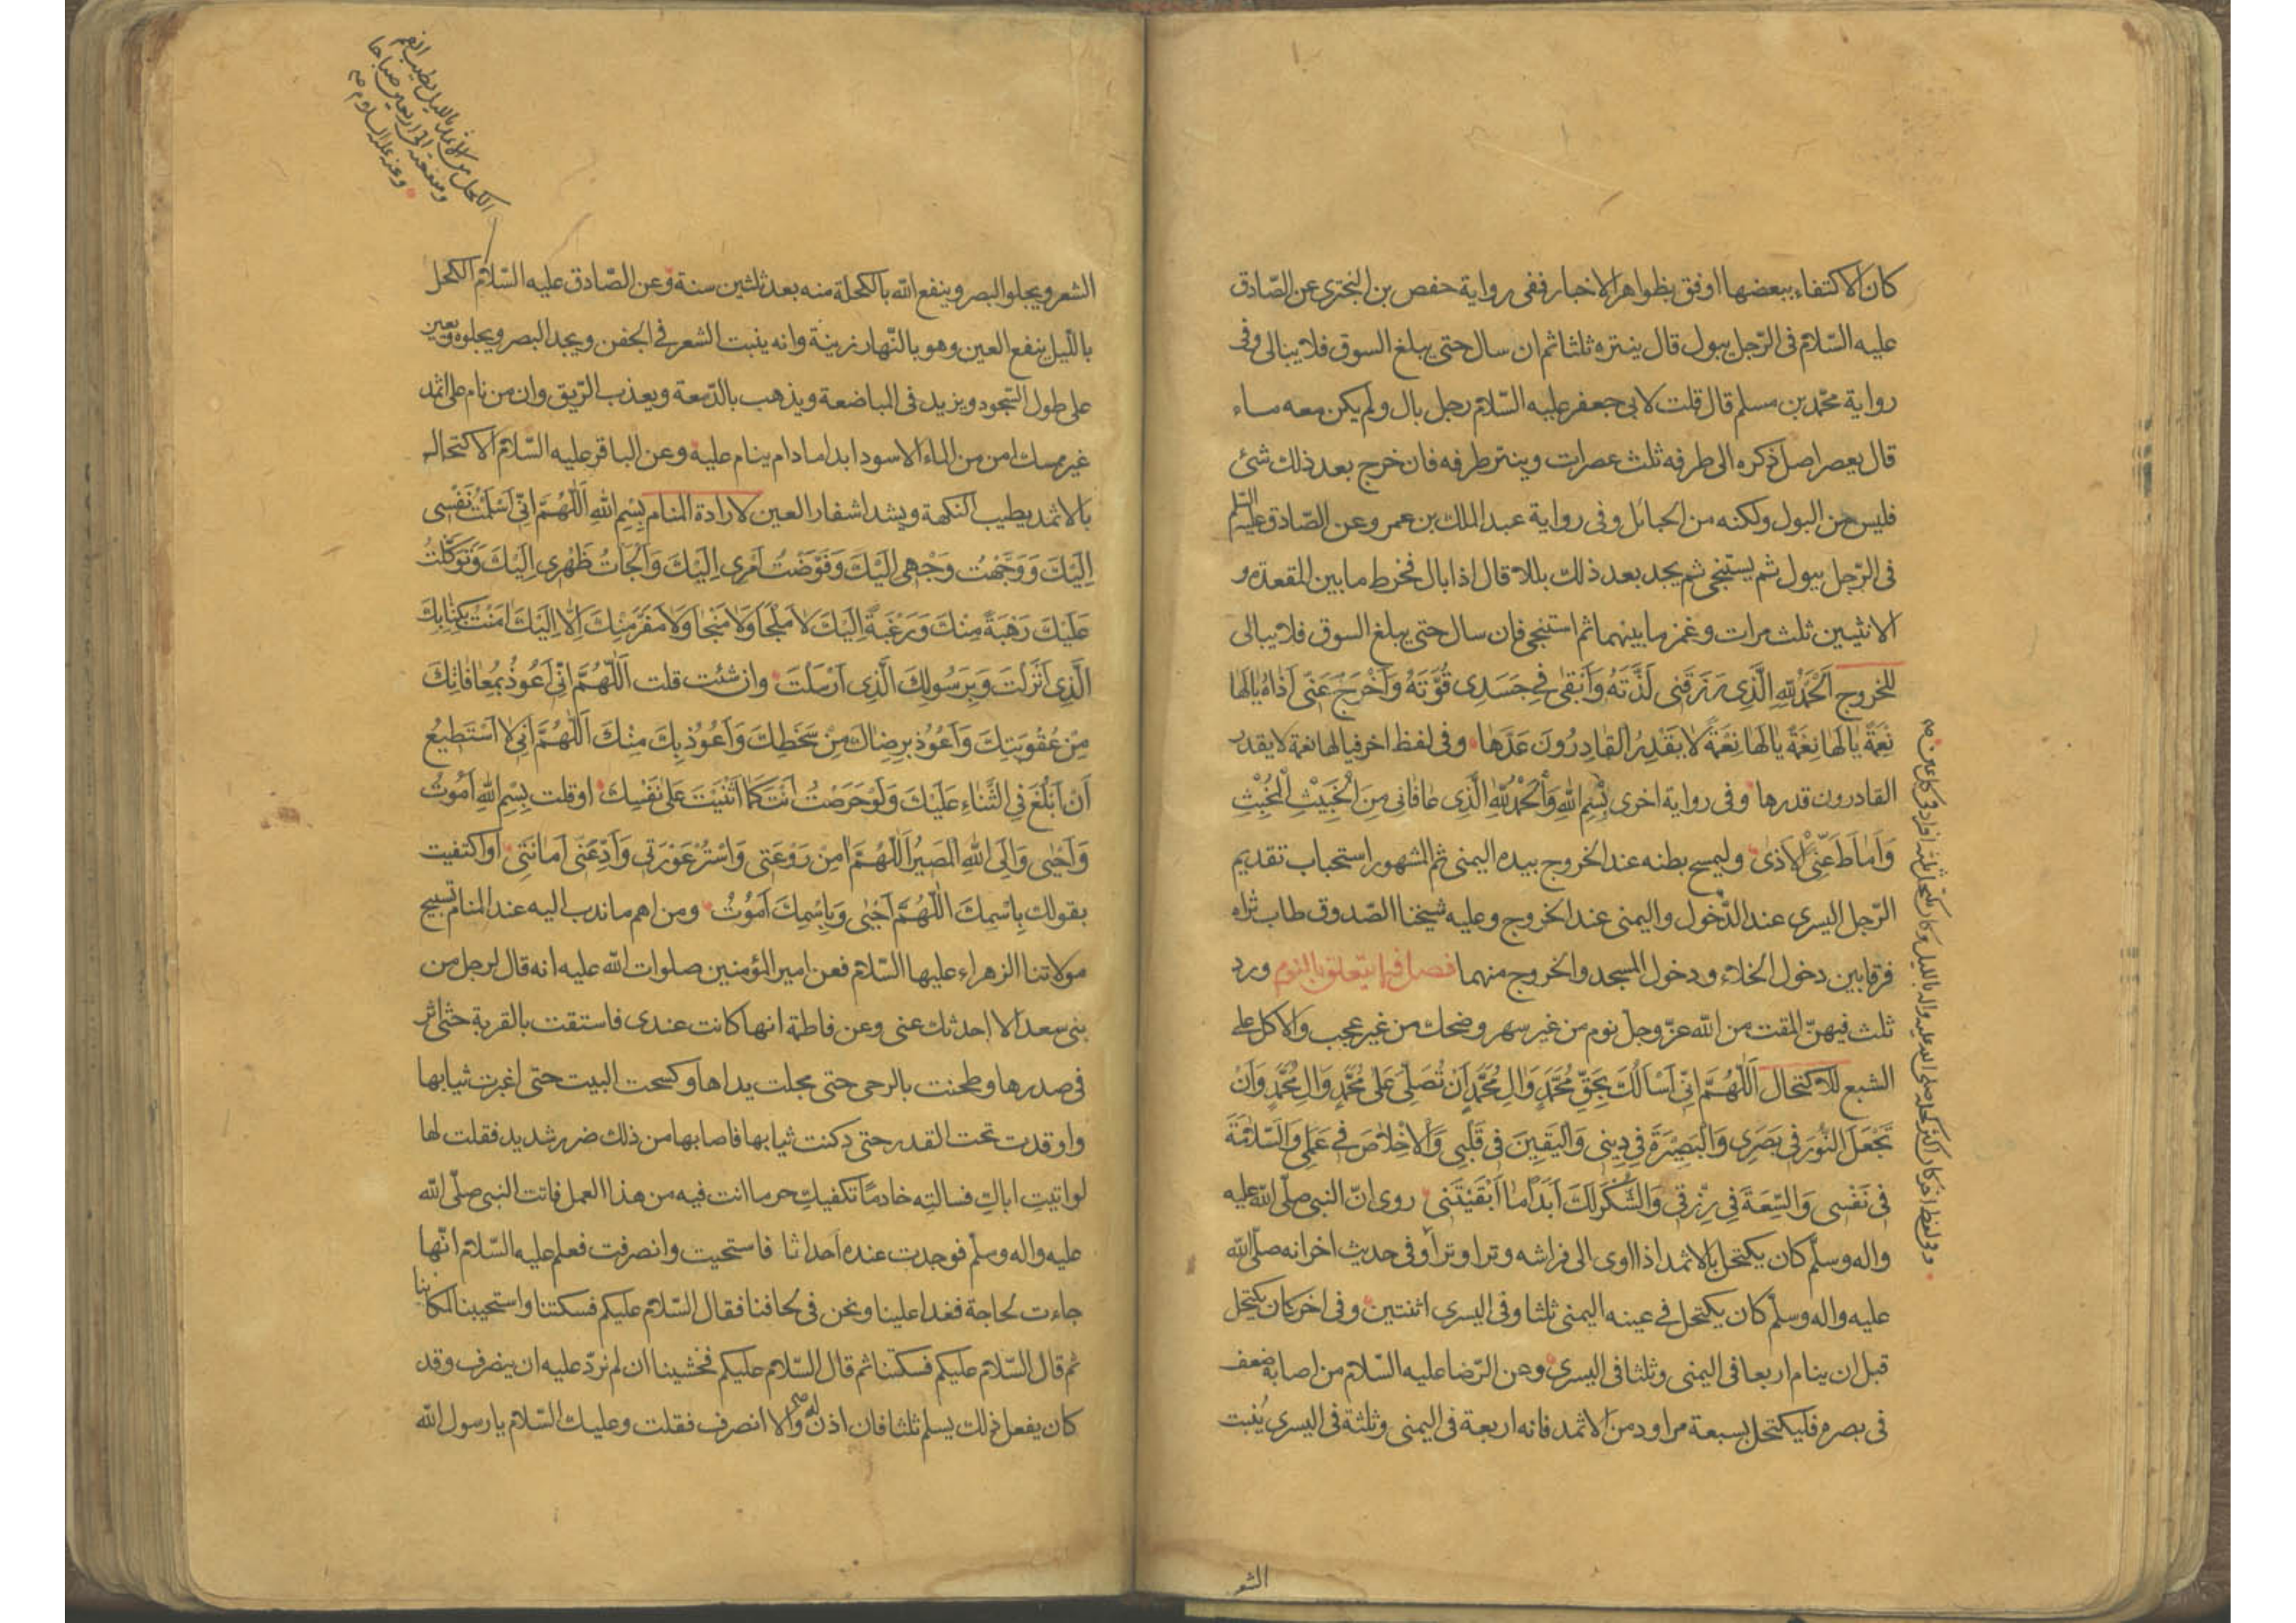 كان الاكتفاء ببعضها اوفق بظواهر الاخبار ففى رواية حفص بن البخترى عن الصّادق
عليه السّلام فى الرّجل يبول قال ينتره ثلثا ثم ان سال حتى يبلغ السوق فلا يبالى وفى
رواية محمّد بن مسلم قال قلت لابى جعفر عليه السّلام رجل بال ولم يكن معه ماء
قال يعصر اصل ذكره الى طرفه ثلث عصرات وينتر طرفه فان خرج بعد ذلك شئ
فليس من البول ولكنه من الحبائل وفى رواية عبد الملك بن عمر وعن الصّادق عليه السّلم
فى الرّجل يبول ثم يستنجى ثم يجد بعد ذلك بللا قال اذا بال فخرط ما بين المقعدة و
الانثيين ثلث مرات وغمز ما بينهما ثم استنجى فان سال حتى يبلغ السوق فلا يبالى
للخروج اَلْحَمْدُ لِلّٰهِ الَّذِى رَزَقَنِى لَذَّتَهُ وَاَبْقٰى فِى جَسَدِى قُوَّتَهُ وَاَخْرَجَ عَنّى اَذَاهُ يَالَهَا
نِعْمَةً يَالَهَا نِعْمَةً يَالَهَا نِعْمَةً لَا يَقْدِرُ الْقَادِرُونَ قَدْرَهَا وفى لفظ اخر فيالها نعمة لا يقدر
القادرون قدرها وفى رواية اخرى بِسْمِ اللّٰهِ وَاَلْحَمْدُ لِلّٰهِ الَّذِى عَافَانِى مِنَ الْخَبِيْثِ الْمُخْبِثِ
وَاَمَاطَ عَنِّى الْاَذٰى وليمسح بطنه عند الخروج بيده اليمنى ثم المشهور استحباب تقديم
الرّجل اليسرى عند الدّخول واليمنى عند الخروج وعليه شيخنا الصّدوق طاب ثراه
فرقا بين دخول الخلاء ودخول المسجد والخروج منهما فصل فيما يتعلق بالنوم ورد
ثلث فيهنّ المقت من اللّٰه عزّ وجلّ نوم من غير سهر وضحك من غير عجب والاكل على
الشبع للاكتحال اَللّٰهُمَّ اِنّى اَسْاَلُكَ بِحَقِّ مُحَمَّدٍ وَاٰلِ مُحَمَّدٍ اَنْ تُصَلِّىَ عَلٰى مُحَمَّدٍ وَاٰلِ مُحَمَّدٍ وَاَنْ
تَجْعَلَ النُّوْرَ فِى بَصَرِى وَالْبَصِيْرَةَ فِى دِيْنِى وَالْيَقِيْنَ فِى قَلْبِى وَالْاِخْلَاصَ فِى عَمَلِى وَالسَّلَامَةَ
فِى نَفْسِى وَالسَّعَةَ فِى رِزْقِى وَالشُّكْرَ لَكَ اَبَدًا مَا اَبْقَيْتَنِى روى انّ النبى صلّى اللّٰه عليه
واله وسلّم كان يكتحل بالاثمد اذا اوى الى فراشه وترا وترا وفى حديث اخر انه صلّى اللّٰه
عليه واله وسلّم كان يكتحل فى عينه اليمنى ثلثا وفى اليسرى اثنتين وفى اخر كان يكتحل
قبل ان ينام اربعا فى اليمنى وثلثا فى اليسرى وعن الرّضا عليه السّلام من اصابه ضعف
فى بصره فليكتحل بسبعة مراود من الاثمد فانه اربعة فى اليمنى وثلثة فى اليسرى يُنبت
الشعر
الشعر ويجلو البصر وينفع اللّٰه بالكحلة منه بعد ثلثين سنة وعن الصّادق عليه السّلام الكحل
بالّليل ينفع العين وهو بالنّهار زينة وانه ينبت الشعر فى الجفن ويحد البصر ويجلوه ويعين
على طول السّجود ويزيد فى المباضعة ويذهب بالدّمعة ويعذب الرّيق وان من نام على اثمد
غير ممسك امن من الماء الاسود ابدا مادام ينام عليه وعن الباقر عليه السّلام الاكتحال
بالاثمد يطيب النكهة ويشد اشفار العين لارادة المنام بِسْمِ اللّٰهِ اَللّٰهُمَّ اِنّى اَسْلَمْتُ نَفْسِى
اِلَيْكَ وَوَجَّهْتُ وَجْهِى اِلَيْكَ وَفَوَّضْتُ اَمْرِى اِلَيْكَ وَاَلْجَاْتُ ظَهْرِى اِلَيْكَ وَتَوَكَّلْتُ
عَلَيْكَ رَهْبَةً مِنْكَ وَرَغْبَةً اِلَيْكَ لَا مَلْجَاَ وَلَا مَنْجَا وَلَا مَفَرَّ مِنْكَ اِلَّا اِلَيْكَ اٰمَنْتُ بِكِتَابِكَ
الَّذِى اَنْزَلْتَ وَبِرَسُولِكَ الَّذِى اَرْسَلْتَ وان شئت قلت اَللّٰهُمَّ اِنّى اَعُوذُ بِمُعَافَاتِكَ
مِنْ عُقُوْبَتِكَ وَاَعُوْذُ بِرِضَاكَ مِنْ سَخَطِكَ وَاَعُوْذُ بِكَ مِنْكَ اَللّٰهُمَّ اِنّى لَا اَسْتَطِيْعُ
اَنْ اَبْلُغَ فِى الثَّنَاءِ عَلَيْكَ وَلَوْ حَرَصْتُ اَنْتَ كَمَا اَثْنَيْتَ عَلٰى نَفْسِكَ او قلت بِسْمِ اللّٰهِ اَمُوْتُ
وَاَحْيٰى وَاِلَى اللّٰهِ الْمَصِيْرُ اَللّٰهُمَّ اٰمِنْ رَوْعَتِى وَاسْتُرْ عَوْرَتِى وَاَدِّ عَنِّى اَمَانَتِى او اكتفيت
بقولك بِاسْمِكَ اللّٰهُمَّ اَحْيٰى وَبِاسْمِكَ اَمُوْتُ ومن اهم ما ندب اليه عند المنام تسبيح
مولاتنا الزهراء عليها السّلام فعن امير المؤمنين صلوات اللّٰه عليه انه قال لرجل من
بنى سعد الا احدثك عنى وعن فاطمة انها كانت عندى فاستقت بالقربة حتى اثر
فى صدرها وطحنت بالرحى حتى مجلت يداها وكسحت البيت حتى اغبرت ثيابها
واوقدت تحت القدر حتى دكنت ثيابها فاصابها من ذلك ضرر شديد فقلت لها
لو اتيتِ اباكِ فسالتِه خادمًا تكفيكِ حر ما انت فيه من هذا العمل فاتت النبى صلّى اللّٰه
عليه واله وسلّم فوجدت عنده احداثا فاستحيت وانصرفت فعلم عليه السّلام انّها
جاءت لحاجة فغدا علينا ونحن فى لحافنا فقال السّلام عليكم فسكتنا واستحيينا لمكاننا
ثم قال السّلام عليكم فسكتنا ثم قال السّلام عليكم فخشينا ان لم نردّ عليه ان ينصرف وقد
كان يفعل ذلك يسلم ثلثا فان اذن له والا انصرف فقلت وعليك السّلام يا رسول اللّٰه
الكحل من الاثمد بالليل يطيب الفم
ومنفعته الى اربعين صباحا
وعنه عليه السلام
وفى لفظ اخر كان اكثر كحله صلى الله عليه واله بالليل وكان يكتحل ثلثة افراد فى كل عين